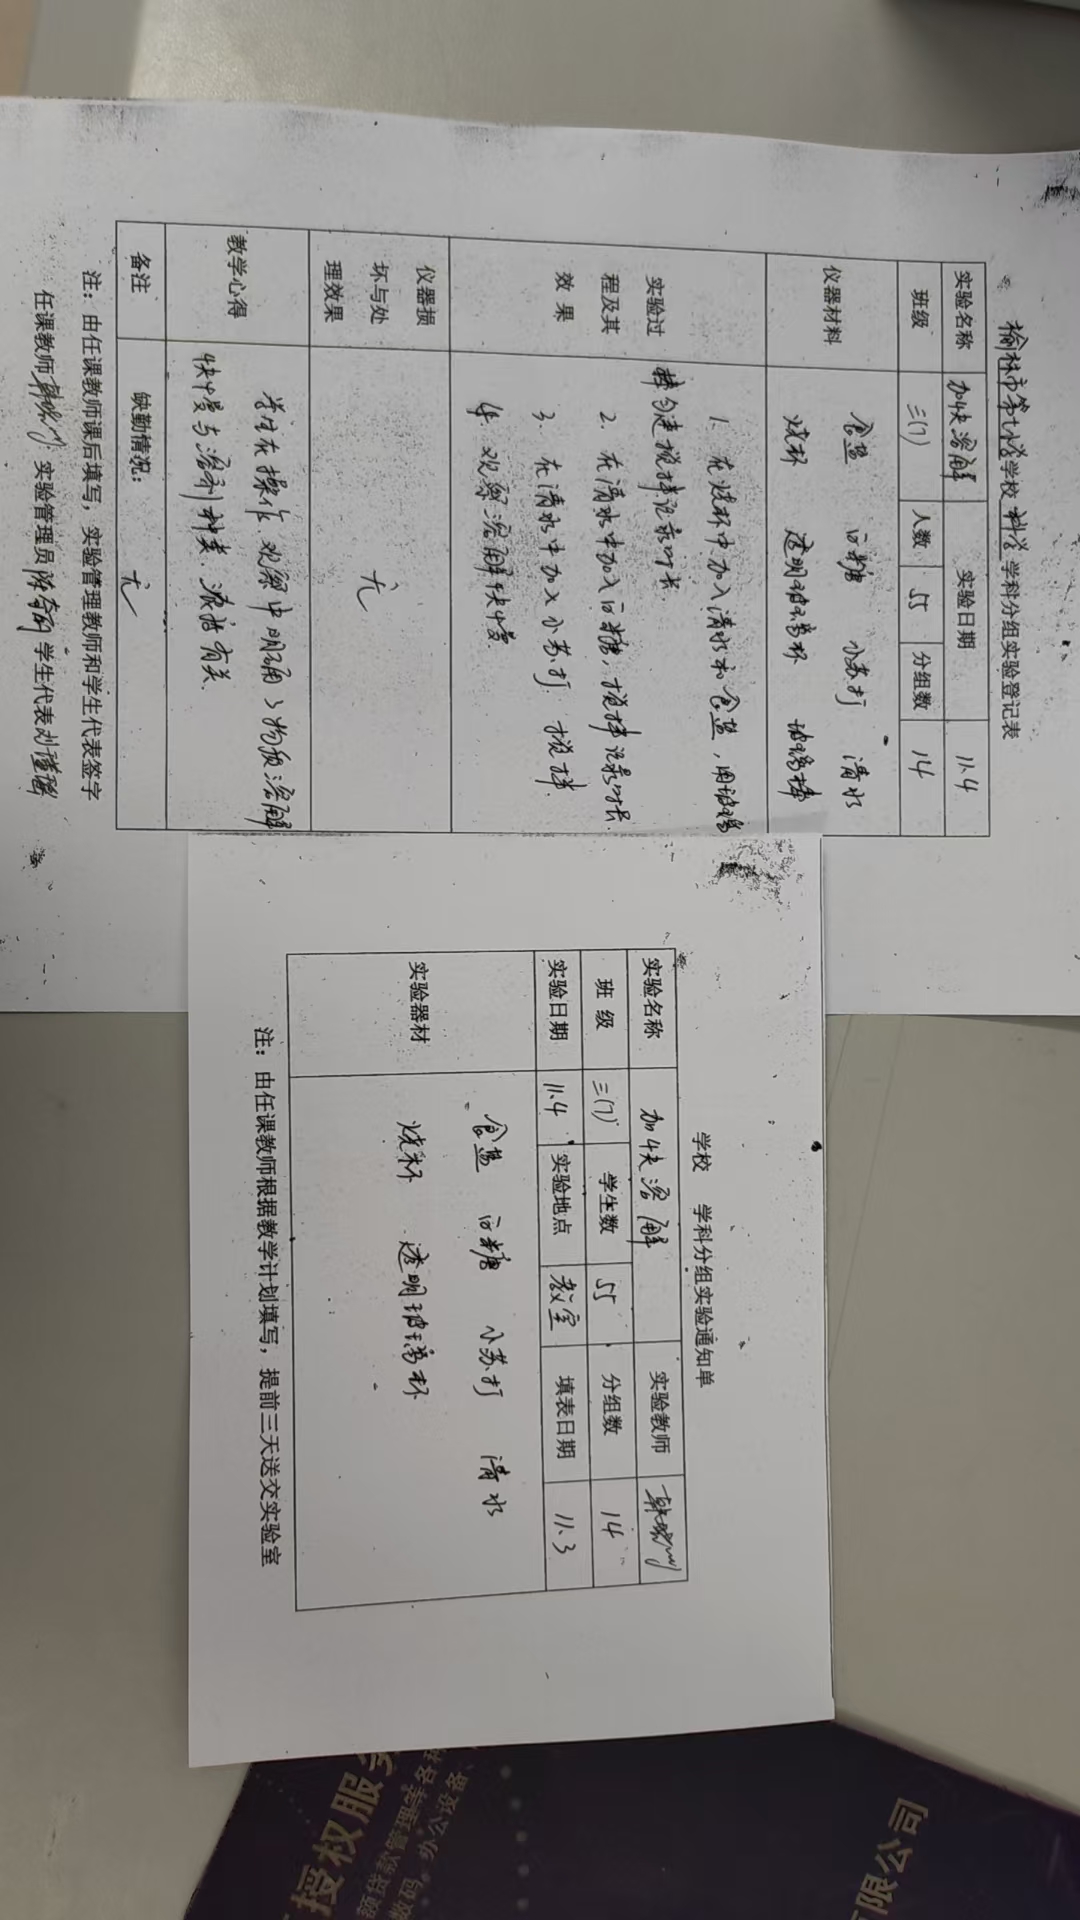 榆林市第十小学学校科学学科分组实验登记表
实验名称 加快溶解 实验日期 11.4
班级 三(7) 人数 55 分组数 14
仪器材料
食盐 白糖 小苏打 清水
烧杯 透明玻璃杯 玻璃棒
实验过程及其效果
1. 在烧杯中加入清水和食盐,用玻璃
棒匀速搅拌记录时长
2. 在清水中加入白糖,搅拌记录时长
3. 在清水中加入小苏打 搅拌.
4. 观察溶解快慢
仪器损坏与处理效果 无
教学心得
学生在操作、观察中明确了物质溶解
快慢与溶剂种类、液体有关.
备注 缺勤情况: 无
注:由任课教师课后填写,实验管理教师和学生代表签字
任课教师 实验管理员 学生代表
学校 学科分组实验通知单
实验名称 加快溶解 实验教师
班级 三(7) 学生数 55 分组数 14
实验日期 11.4 实验地点 教室 填表日期 11.3
实验器材
食盐 白糖 小苏打 清水
烧杯 透明玻璃杯
注:由任课教师根据教学计划填写,提前三天送交实验室
授权服务
额贷款管理等各种
数码、办公设备、
有限公司